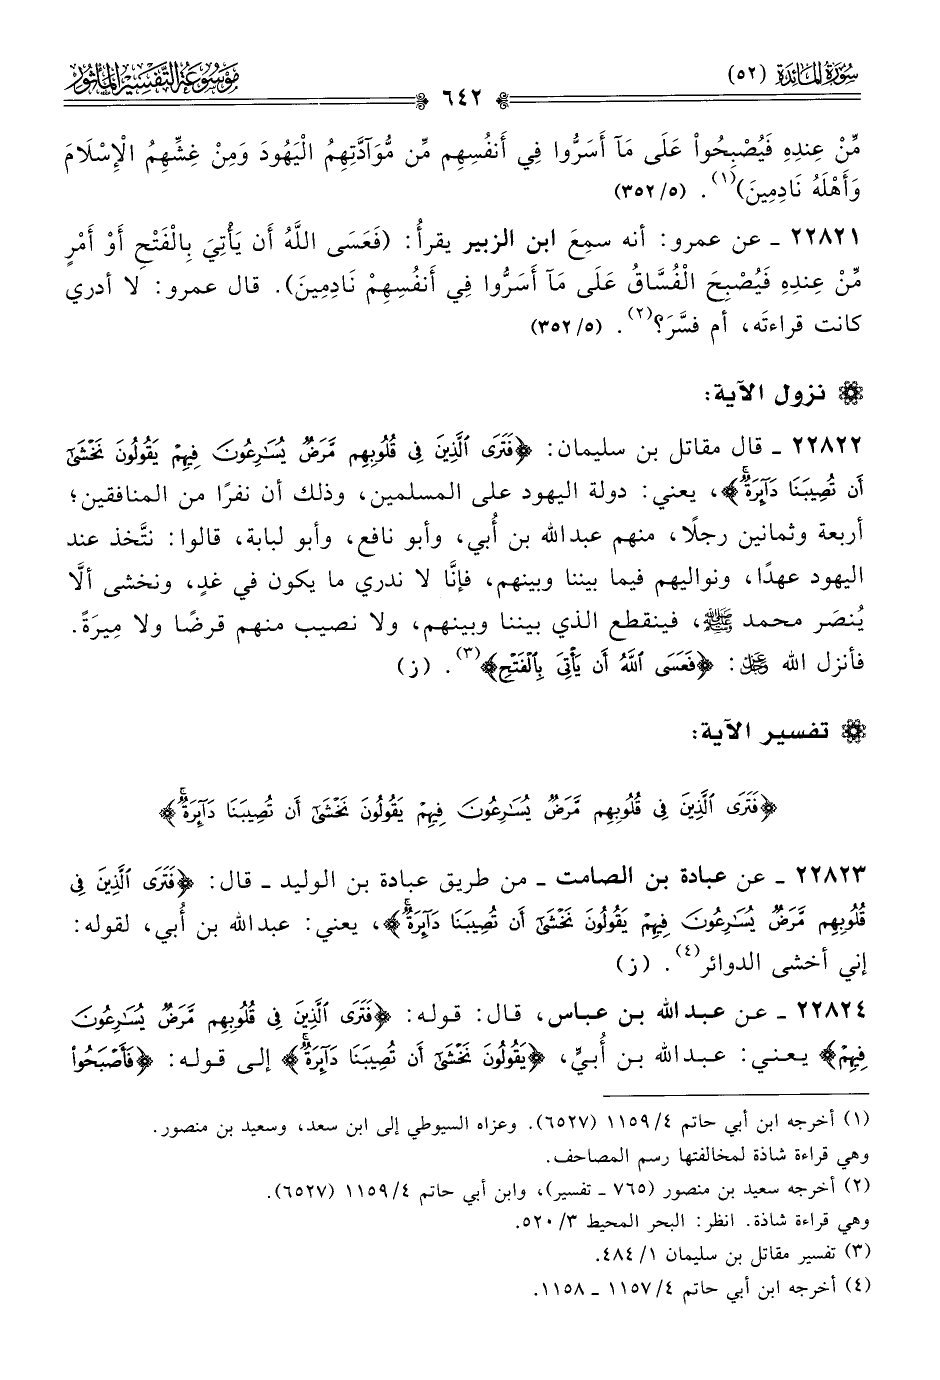 سُورَةُ المَائِدَة (٥٢)
٦٤٢
مَوْسُوعَةُ التَّفْسِيرِ المَأْثُور
مِّنْ عِندِهِ فَيُصْبِحُواْ عَلَى مَآ أَسَرُّوا فِي أَنفُسِهِم مِّن مُّوَآدَّتِهِمُ الْيَهُودَ وَمِنْ غِشِّهِمُ الْإِسْلَامَ
وَأَهْلَهُ نَادِمِينَ)(١). (٥/ ٣٥٢)
٢٢٨٢١ ـ عن عمرو: أنه سمِعَ ابن الزبير يقرأُ: (فَعَسَى اللَّهُ أَن يَأْتِيَ بِالْفَتْحِ أَوْ أَمْرٍ
مِّنْ عِندِهِ فَيُصْبِحَ الْفُسَّاقُ عَلَى مَآ أَسَرُّوا فِي أَنفُسِهِمْ نَادِمِينَ). قال عمرو: لا أدري
كانت قراءتَه، أم فسَّرَ؟(٢). (٥/ ٣٥٢)
نزول الآية:
٢٢٨٢٢ ـ قال مقاتل بن سليمان: ﴿فَتَرَى ٱلَّذِينَ فِى قُلُوبِهِم مَّرَضٌ يُسَـٰرِعُونَ فِيهِمْ يَقُولُونَ نَخْشَىٰٓ
أَن تُصِيبَنَا دَآئِرَةٌۚ﴾، يعني: دولة اليهود على المسلمين، وذلك أن نفرًا من المنافقين؛
أربعة وثمانين رجلًا، منهم عبدالله بن أُبي، وأبو نافع، وأبو لبابة، قالوا: نتَّخذ عند
اليهود عهدًا، ونواليهم فيما بيننا وبينهم، فإنَّا لا ندري ما يكون في غدٍ، ونخشى ألَّا
يُنصَر محمد ﷺ، فينقطع الذي بيننا وبينهم، ولا نصيب منهم قرضًا ولا مِيرَةً.
فأنزل الله عزوجل: ﴿فَعَسَى ٱللَّهُ أَن يَأْتِىَ بِٱلْفَتْحِ﴾(٣). (ز)
تفسير الآية:
﴿فَتَرَى ٱلَّذِينَ فِى قُلُوبِهِم مَّرَضٌ يُسَـٰرِعُونَ فِيهِمْ يَقُولُونَ نَخْشَىٰٓ أَن تُصِيبَنَا دَآئِرَةٌۚ﴾
٢٢٨٢٣ ـ عن عبادة بن الصامت ـ من طريق عبادة بن الوليد ـ قال: ﴿فَتَرَى ٱلَّذِينَ فِى
قُلُوبِهِم مَّرَضٌ يُسَـٰرِعُونَ فِيهِمْ يَقُولُونَ نَخْشَىٰٓ أَن تُصِيبَنَا دَآئِرَةٌۚ﴾، يعني: عبدالله بن أُبي، لقوله:
إني أخشى الدوائر(٤). (ز)
٢٢٨٢٤ ـ عن عبدالله بن عباس، قال: قوله: ﴿فَتَرَى ٱلَّذِينَ فِى قُلُوبِهِم مَّرَضٌ يُسَـٰرِعُونَ
فِيهِمْ﴾ يعني: عبدالله بن أُبيٍّ، ﴿يَقُولُونَ نَخْشَىٰٓ أَن تُصِيبَنَا دَآئِرَةٌۚ﴾ إلى قوله: ﴿فَأَصْبَحُواْ
(١) أخرجه ابن أبي حاتم ٤/ ١١٥٩ (٦٥٢٧). وعزاه السيوطي إلى ابن سعد، وسعيد بن منصور.
وهي قراءة شاذة لمخالفتها رسم المصاحف.
(٢) أخرجه سعيد بن منصور (٧٦٥ ـ تفسير)، وابن أبي حاتم ٤/ ١١٥٩ (٦٥٢٧).
وهي قراءة شاذة. انظر: البحر المحيط ٣/ ٥٢٠.
(٣) تفسير مقاتل بن سليمان ١/ ٤٨٤.
(٤) أخرجه ابن أبي حاتم ٤/ ١١٥٧ ـ ١١٥٨.